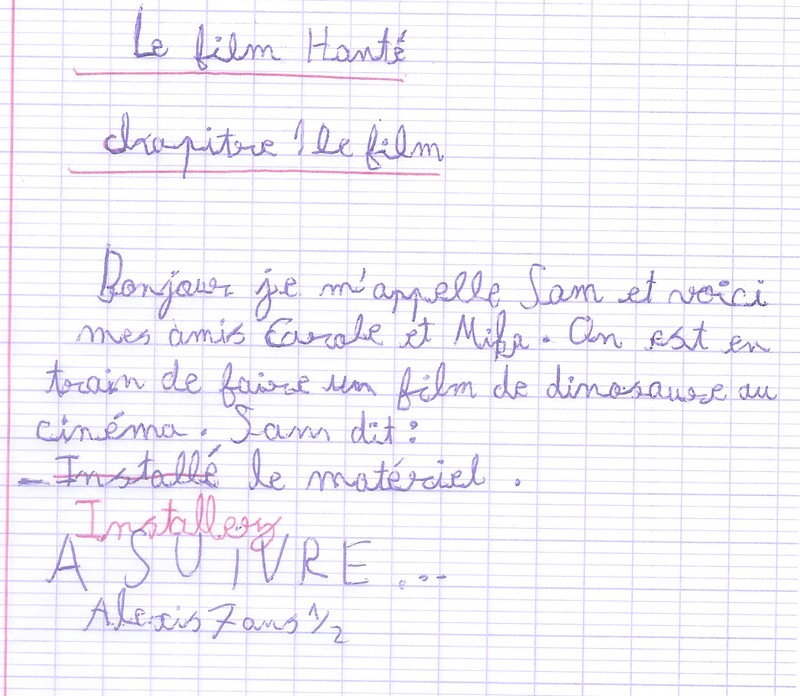 Le film Hanté
chapitre 1 le film
Bonjour je m'appelle Sam et voici
mes amis Carole et Mika. On est en
train de faire un film de dinosaure au
cinéma. Sam dit :
- Installé le matériel.
Installez
A SUIVRE...
Alexis 7 ans 1/2